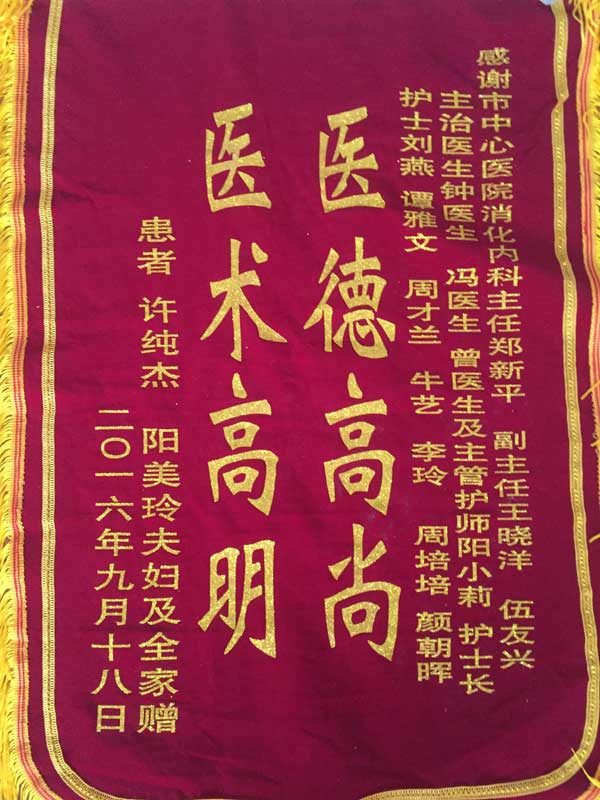 感谢市中心医院消化内科主任郑新平 副主任王晓洋 伍友兴
主治医生钟医生 冯医生 曾医生及主管护师阳小莉 护士长
护士刘燕 谭雅文 周才兰 牛艺 李玲 周培培 颜朝晖
医德高尚
医术高明
患者 许纯杰 阳美玲夫妇及全家赠
二〇一六年九月十八日